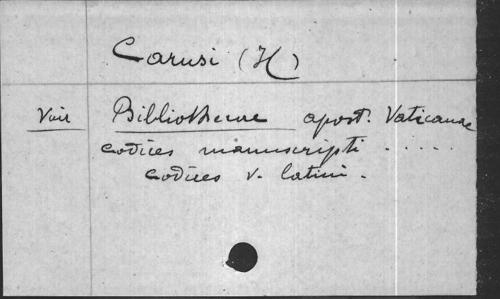 Carusi (H)
Voir Bibliothecae apost. Vaticanae
codices manuscripti .....
codices v. latini.